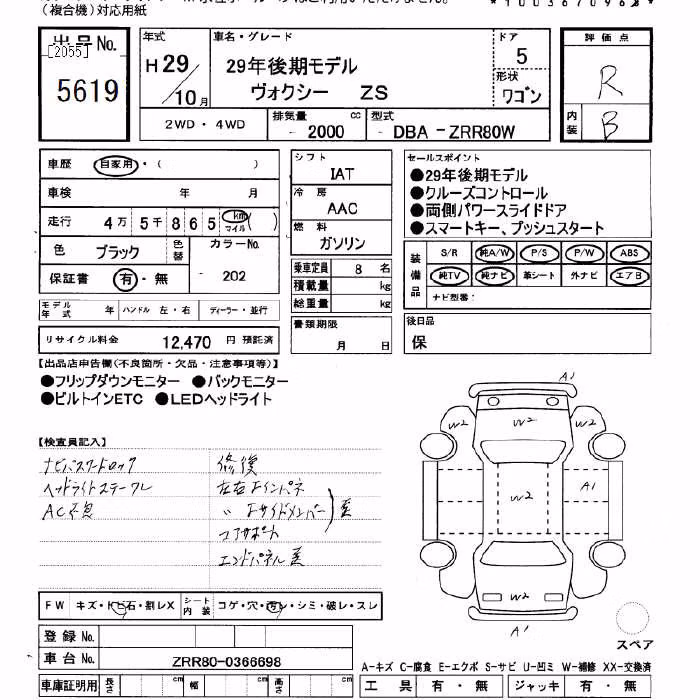 (複合機)対応用紙
出品No.
[2055]
5619
年式
H 29
10月
車名・グレード
29年後期モデル
ヴォクシー ZS
ドア
5
形状
ワゴン
評価点
R
内装
B
2WD・4WD
排気量 cc
- 2000
型式
- DBA - ZRR80W
車歴 自家用・( )
車検 年 月
走行 4万 5千 865 km マイル ( )
色 ブラック
色替
カラーNo.
- 202
保証書 有・無
モデル年式 年
ハンドル 左・右
ディーラー・並行
リサイクル料金 12,470 円 預託済
シフト
IAT
冷房
AAC
燃料
ガソリン
乗車定員 8 名
積載量 kg
総重量 kg
書類期限
月 日
セールスポイント
●29年後期モデル
●クルーズコントロール
●両側パワースライドドア
●スマートキー、プッシュスタート
装備品
S/R 純A/W P/S P/W ABS
純TV 純ナビ 革シート 外ナビ エアB
ナビ型番:
後日品
保
【出品店申告欄(不良箇所・欠品・注意事項等)】
●フリップダウンモニター ●バックモニター
●ビルトインETC ●LEDヘッドライト
【検査員記入】
ナビパスワードロック
ヘッドライトステーワレ
AC不良
修復
左右Fインパネ
〃 Fサイドメンバー
コアサポート
エンドパネル歪
歪
A1
W2 W2 W2
W2
A1
W2
A1
スペア
FW キズ・トビ石・割レX
シート内装 コゲ・穴・汚レ・シミ・破レ・スレ
登録No.
車台No. ZRR80-0366698
車庫証明用 長さ cm 幅 cm 高さ cm
A-キズ C-腐食 E-エクボ S-サビ U-凹ミ W-補修 XX-交換済
工具 有・無 ジャッキ 有・無